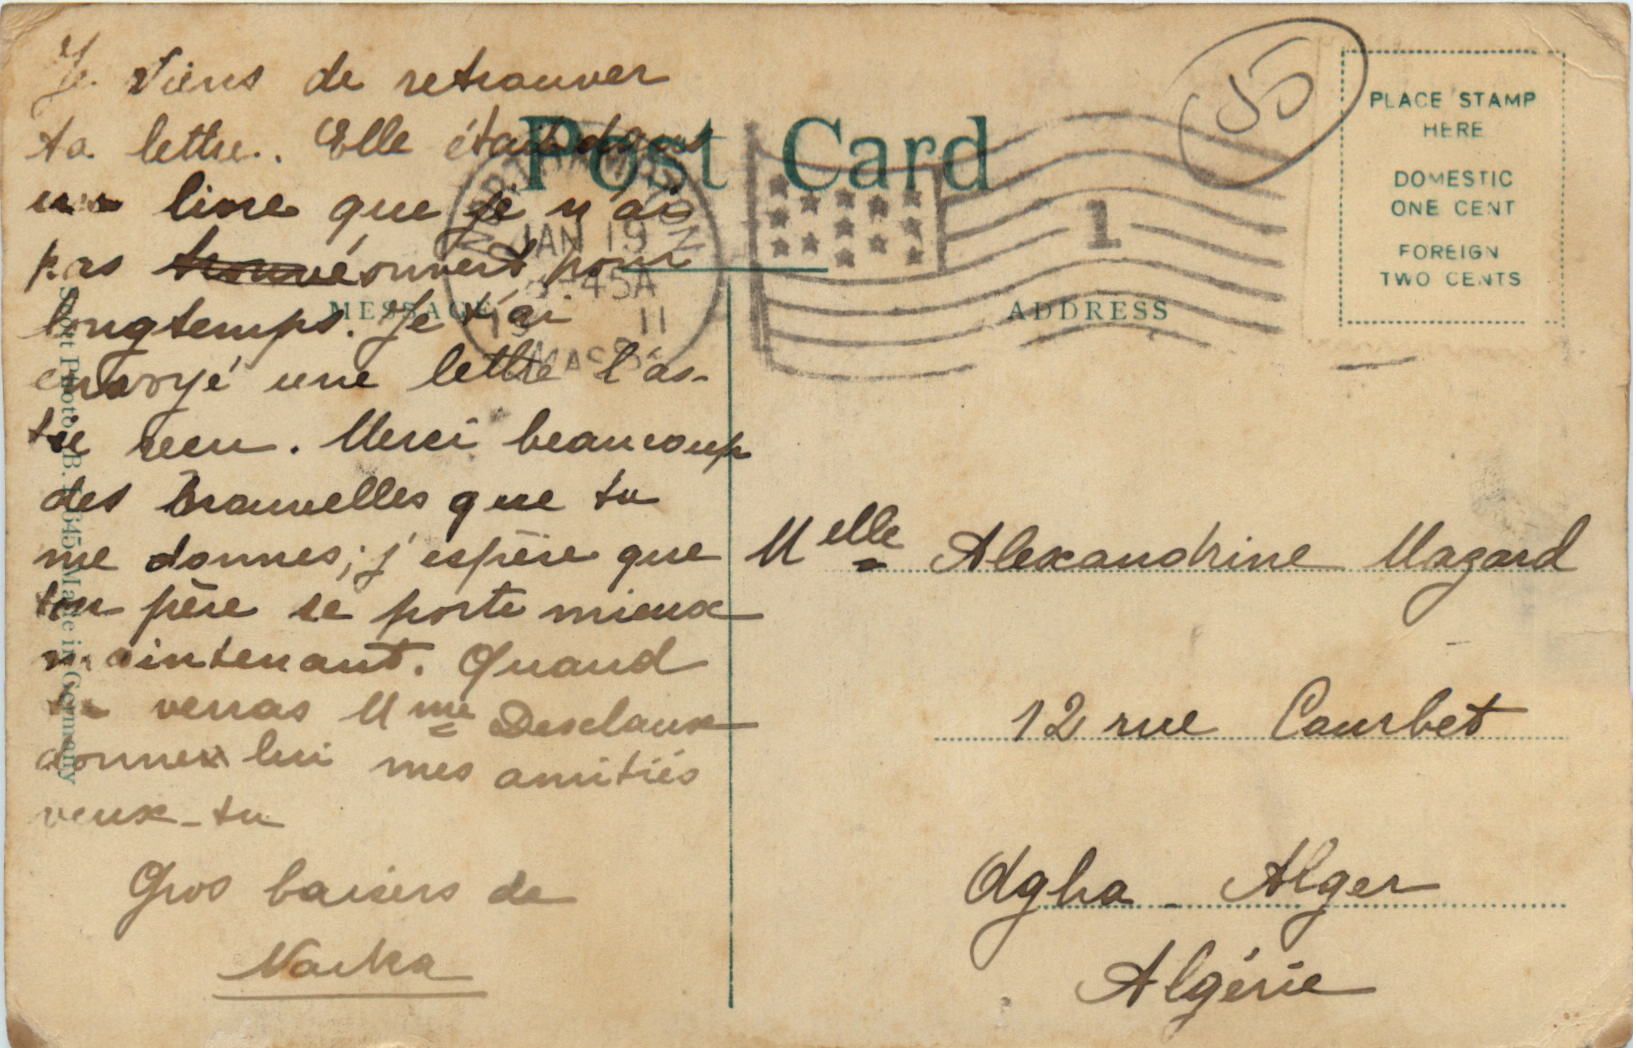 Je viens de retrouver
ta lettre. Elle était dans
un livre que je n'ai
pas trouvé ouvert pour
longtemps. Je t'ai
envoyé une lettre l'as-
tu reçu. Merci beaucoup
des nouvelles que tu
me donnes; j'espère que
ton père se porte mieux
maintenant. Quand
tu verras Mme Desclaux
donnes lui mes amitiés
veux-tu
Gros baisers de
Post Card
MESSAGE
ADDRESS
NORTHAMPTON
JAN 19
45A
11
MASS.
1
55
PLACE STAMP
HERE
DOMESTIC
ONE CENT
FOREIGN
TWO CENTS
Melle Alexandrine Mazard
12 rue Courbet
Agha - Alger
Algérie
Photo. B. Made in Germany